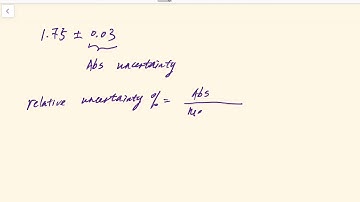 1.75 ± 0.03
Abs uncertainty
relative uncertainty % = Abs